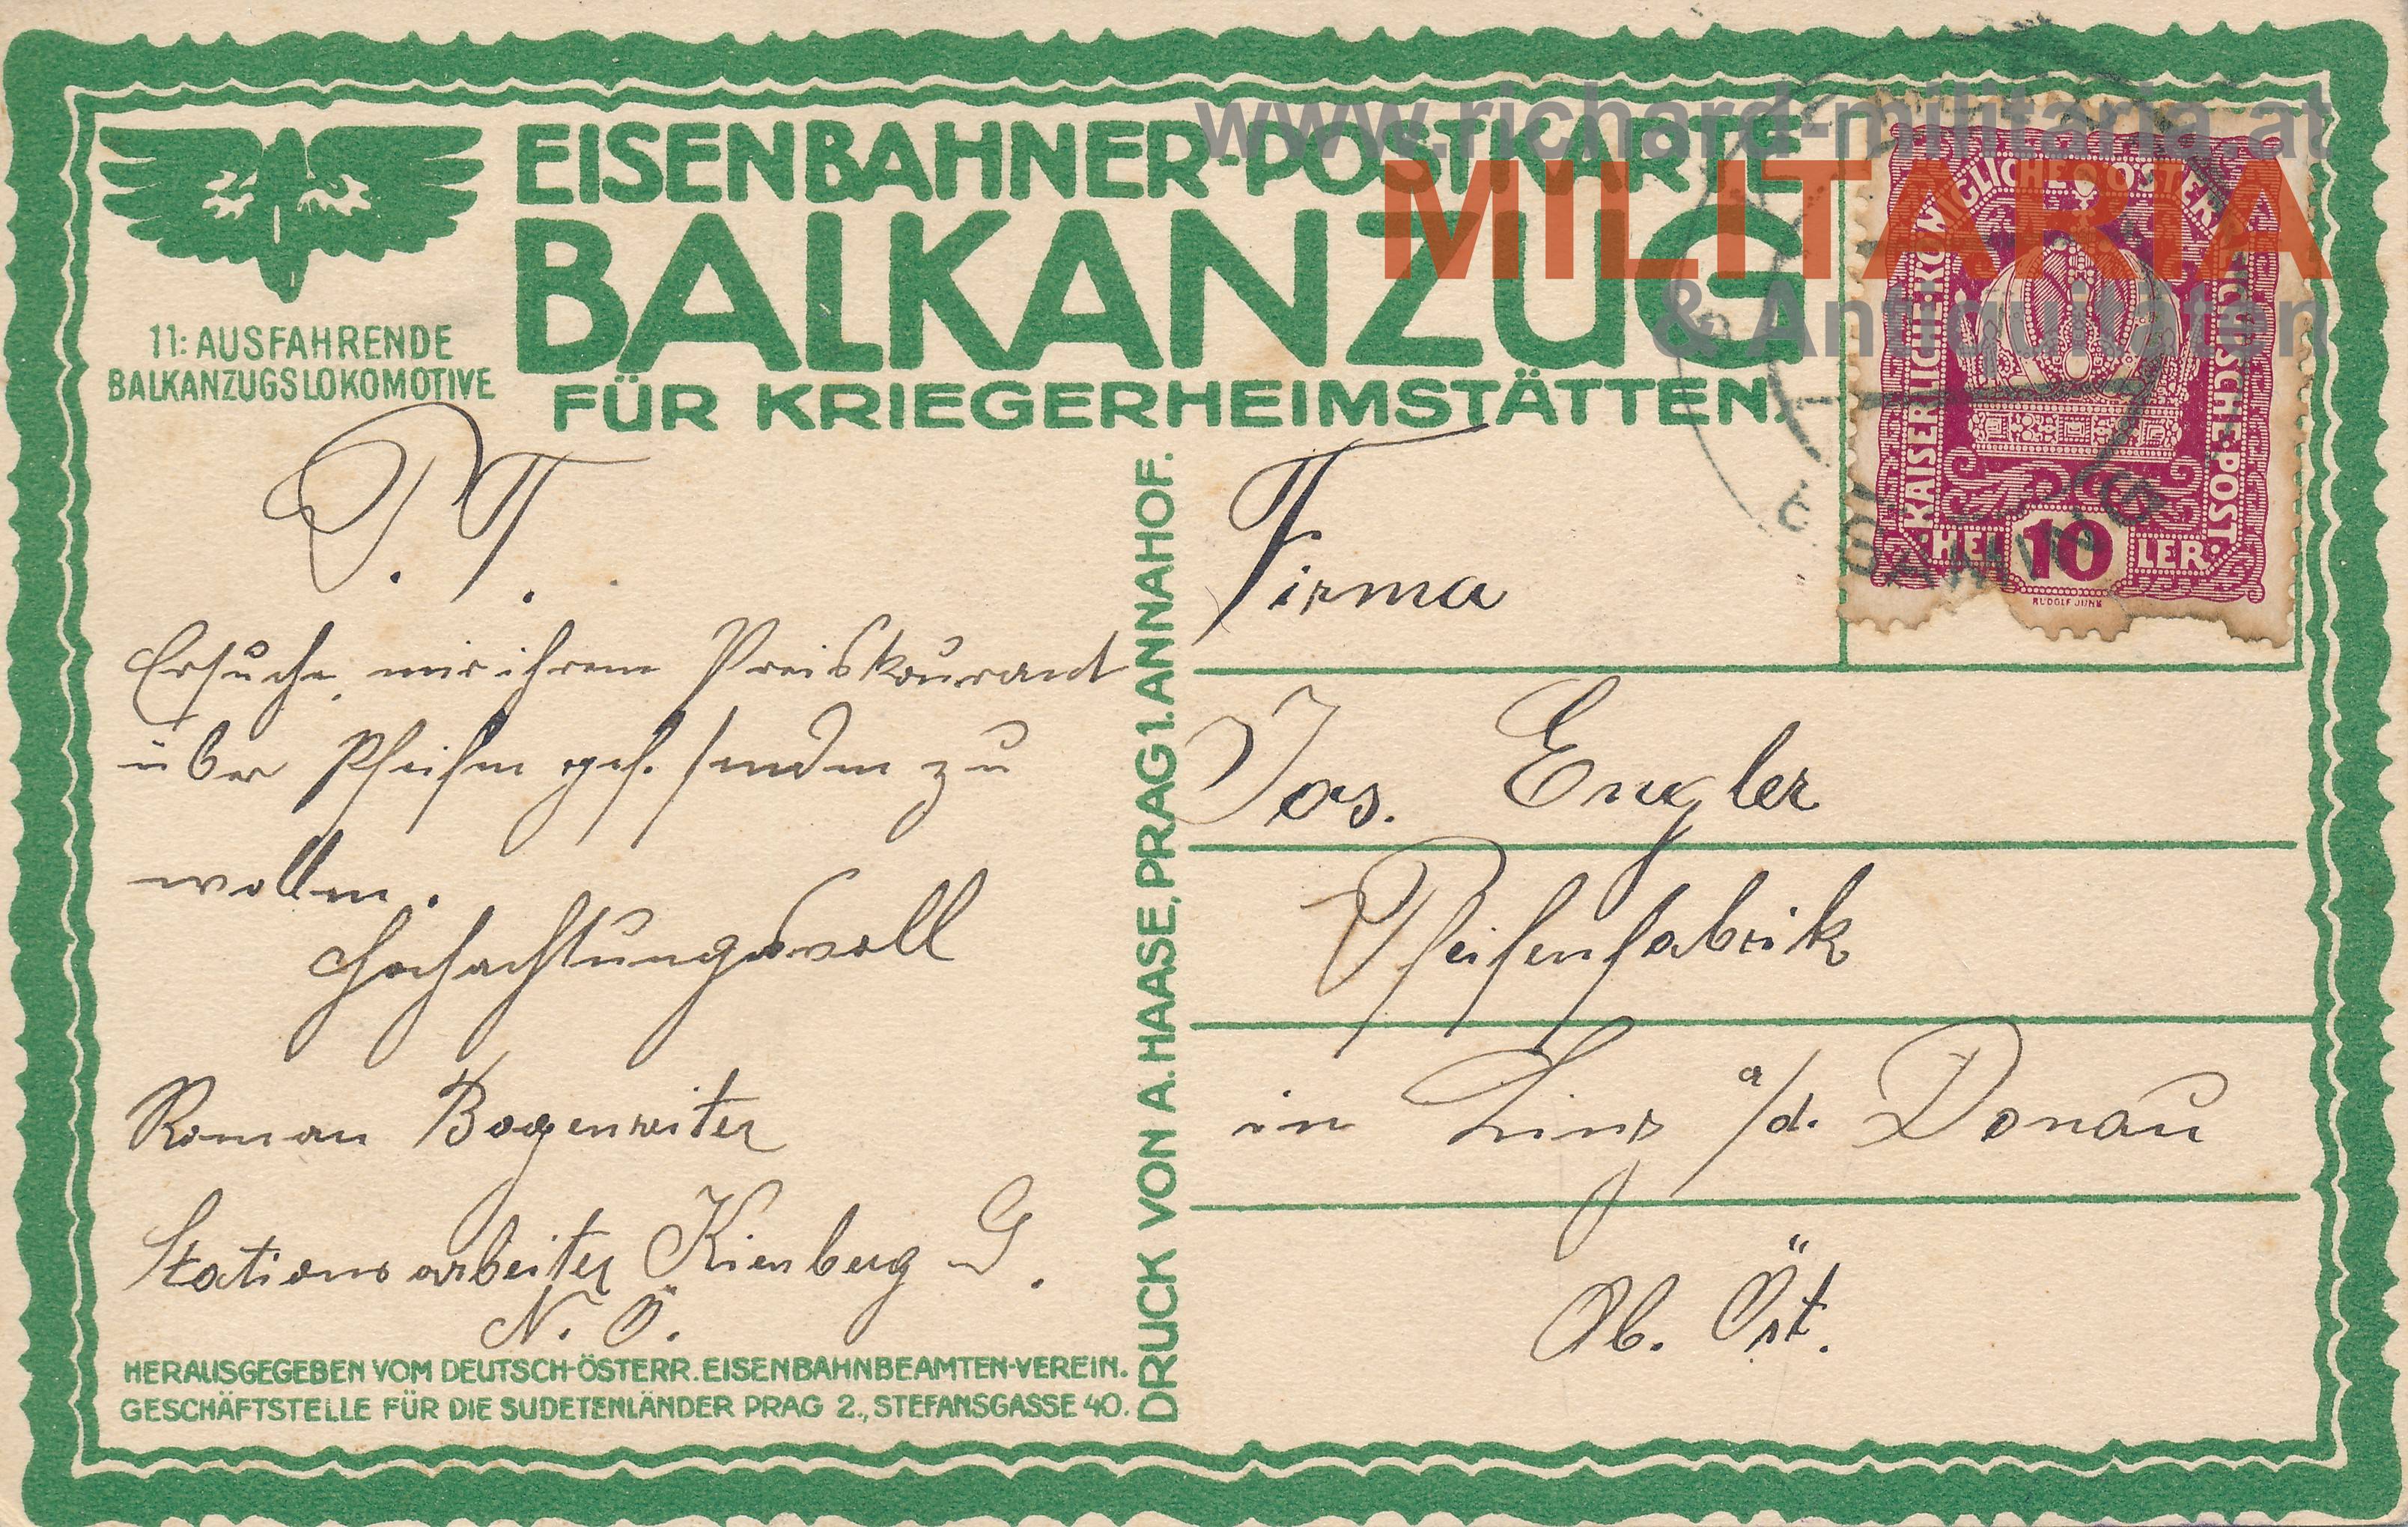 EISENBAHNER-POSTKARTE
BALKANZUG
FÜR KRIEGERHEIMSTÄTTEN.
11: AUSFAHRENDE
BALKANZUGSLOKOMOTIVE
www.richard-militaria.at
MILITARIA
& Antiquitäten
KAISERLICHE·KÖNIGLICHE·ÖSTERREICHISCHE·POST·
HEL 10 LER·
RUDOLF JUNK
P. T.
Ersuche mir ihrem Preiskourand
über Pfeifen gef. senden zu
wollen.
Hochachtungsvoll
Roman Bogenreiter
Stationsarbeiter Kienberg G.
N. Ö.
HERAUSGEGEBEN VOM DEUTSCH-ÖSTERR. EISENBAHNBEAMTEN-VEREIN.
GESCHÄFTSTELLE FÜR DIE SUDETENLÄNDER PRAG 2., STEFANSGASSE 40.
DRUCK VON A. HAASE, PRAG 1. ANNAHOF.
Firma
Jos. Engler
Pfeifenfabrik
in Linz a/d. Donau
Ob. Öst.